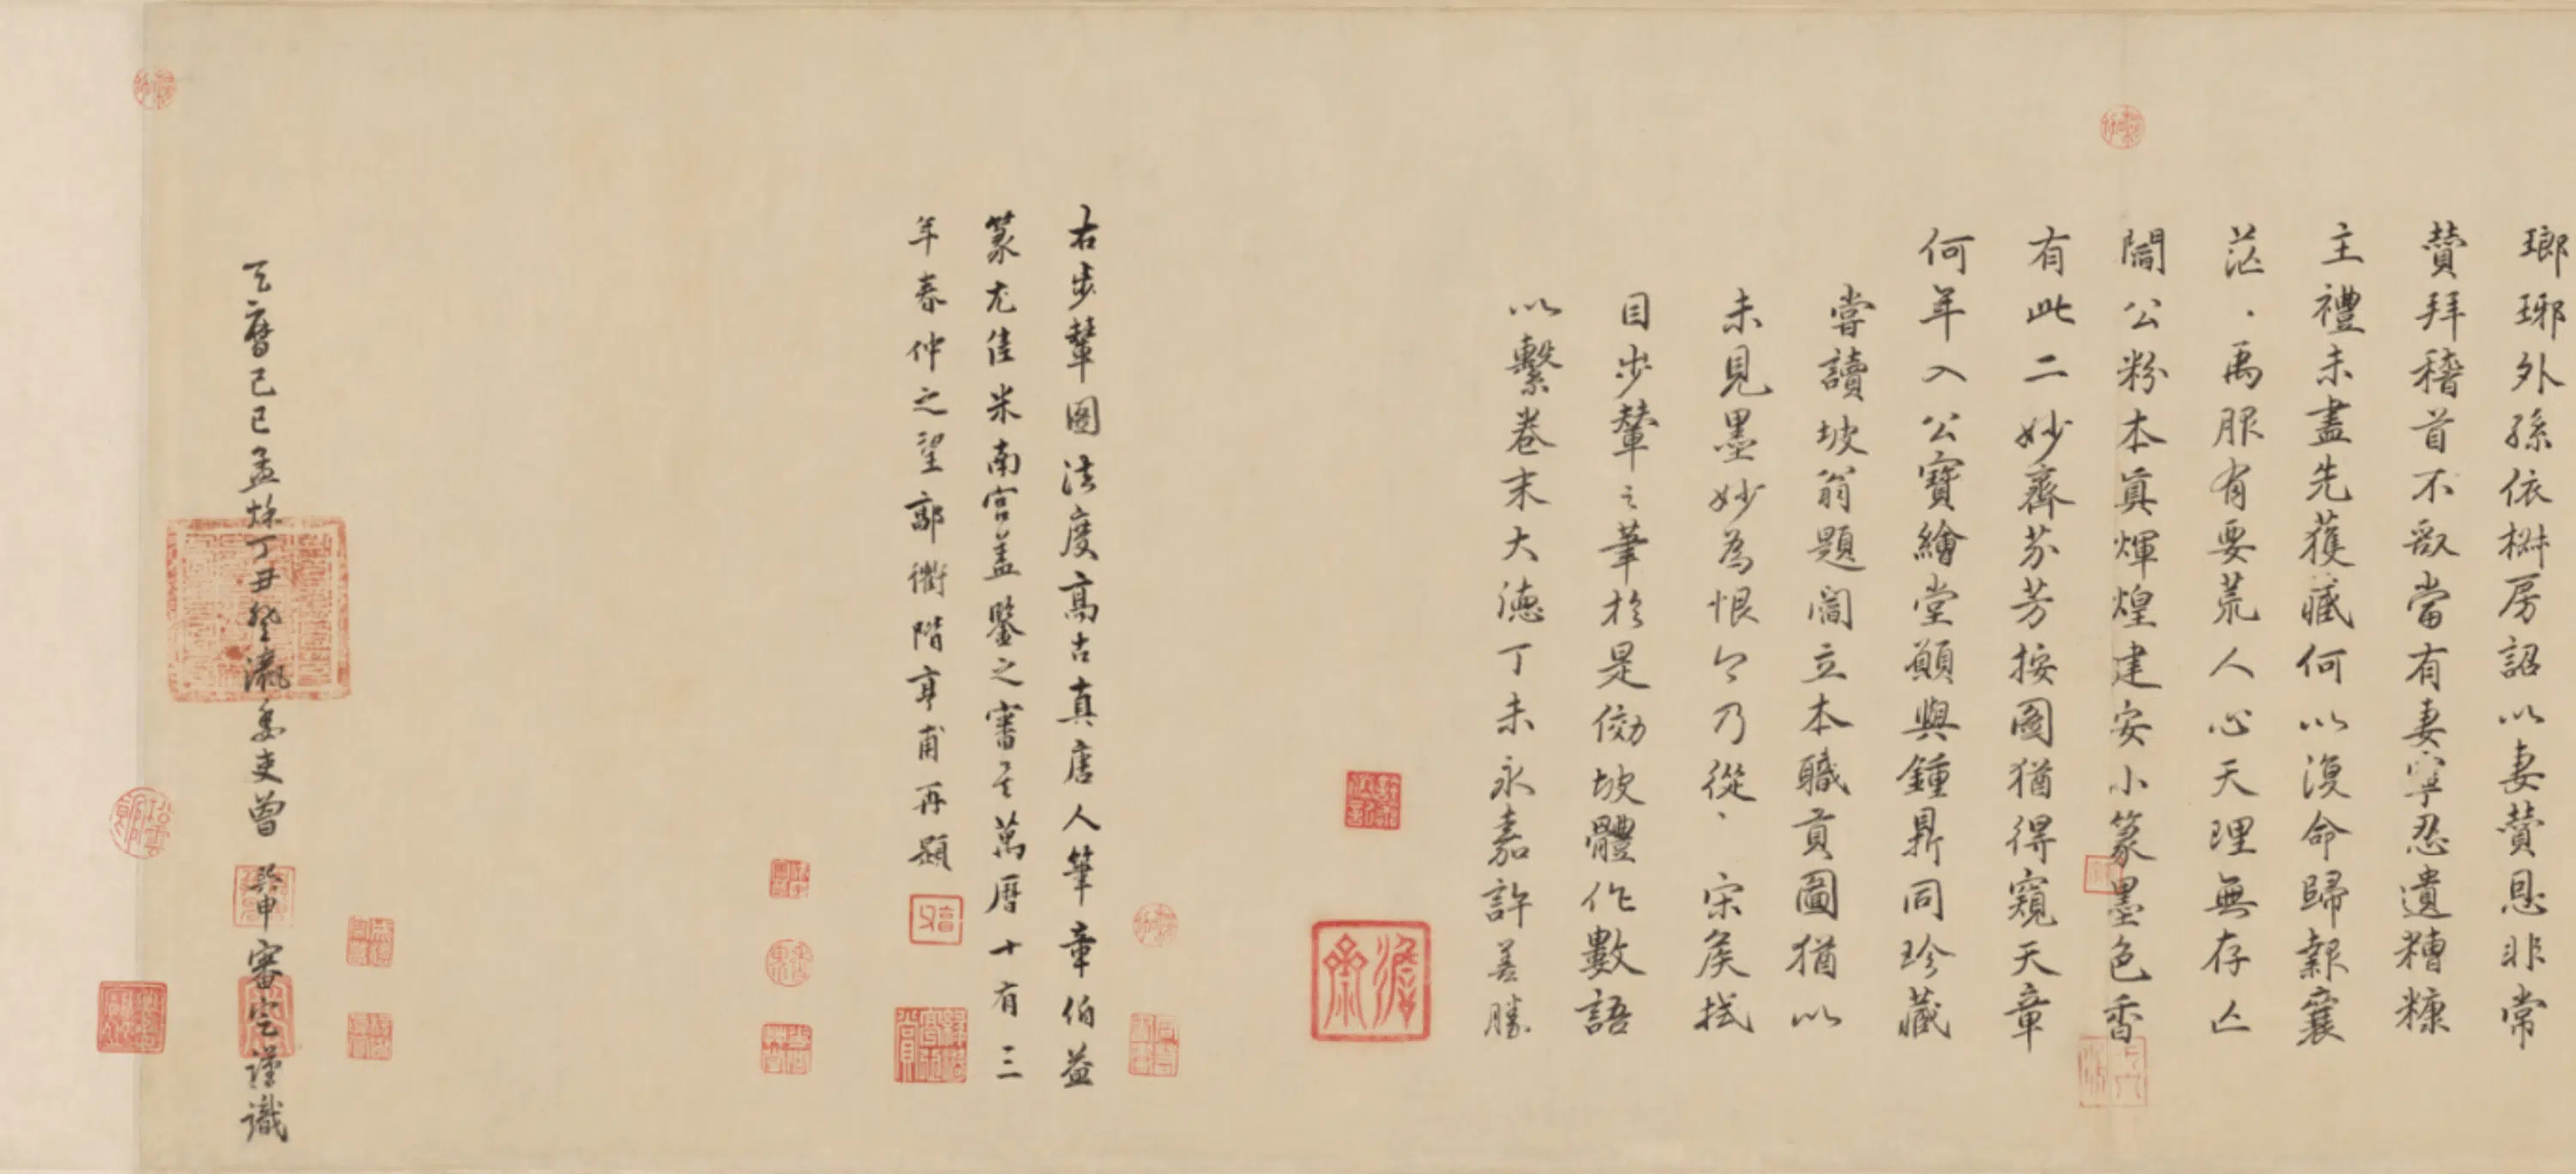 瑯琊外孫依樹房詔以妻賛恩非常
賛拜稽首不敢當有妻寧忍遺糟糠
主禮未盡先獲臧何以復命歸報襄
茫、禹服有要荒人心天理無存亾
閻公粉本真煇煌建安小篆墨色香
有此二妙齊芬芳按圖猶得窺天章
何年入公寶繪堂願與鍾鼎同珍藏
嘗讀坡翁題閻立本職貢圖猶以
未見墨妙為恨今乃從、宋矦拭
目步輦之筆於是傚坡體作數語
以繫卷末大徳丁未永嘉許善勝
右步輦圖法度高古真唐人筆章伯益
篆尤佳米南宮盖鑒之審矣萬曆十有三
年春仲之望郭衢階亨甫再題
天曆己巳孟烁丁丑登瀛
曾
申審定謹識